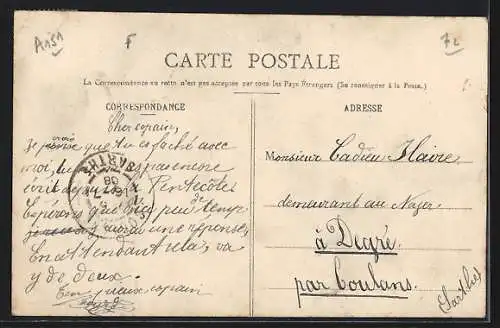 A151
F
72
CARTE POSTALE
La Correspondance au recto n'est pas acceptée par tous les Pays Étrangers (Se renseigner à la Poste.)
CORRESPONDANCE
ADRESSE
Cher copain,
Je crois que tu es faché avec
moi, tu pas encore
écrit depuis la Pentecôte
Espérons que d'ici peu de temp
j'aurai une réponse,
En attendant cela, va
y de deux.
Ton vieux copain
SARTHE
Monsieur Cadieu Hlaire
demeurant au Noyer
à Degré
par Coulans.
(Sarthe)